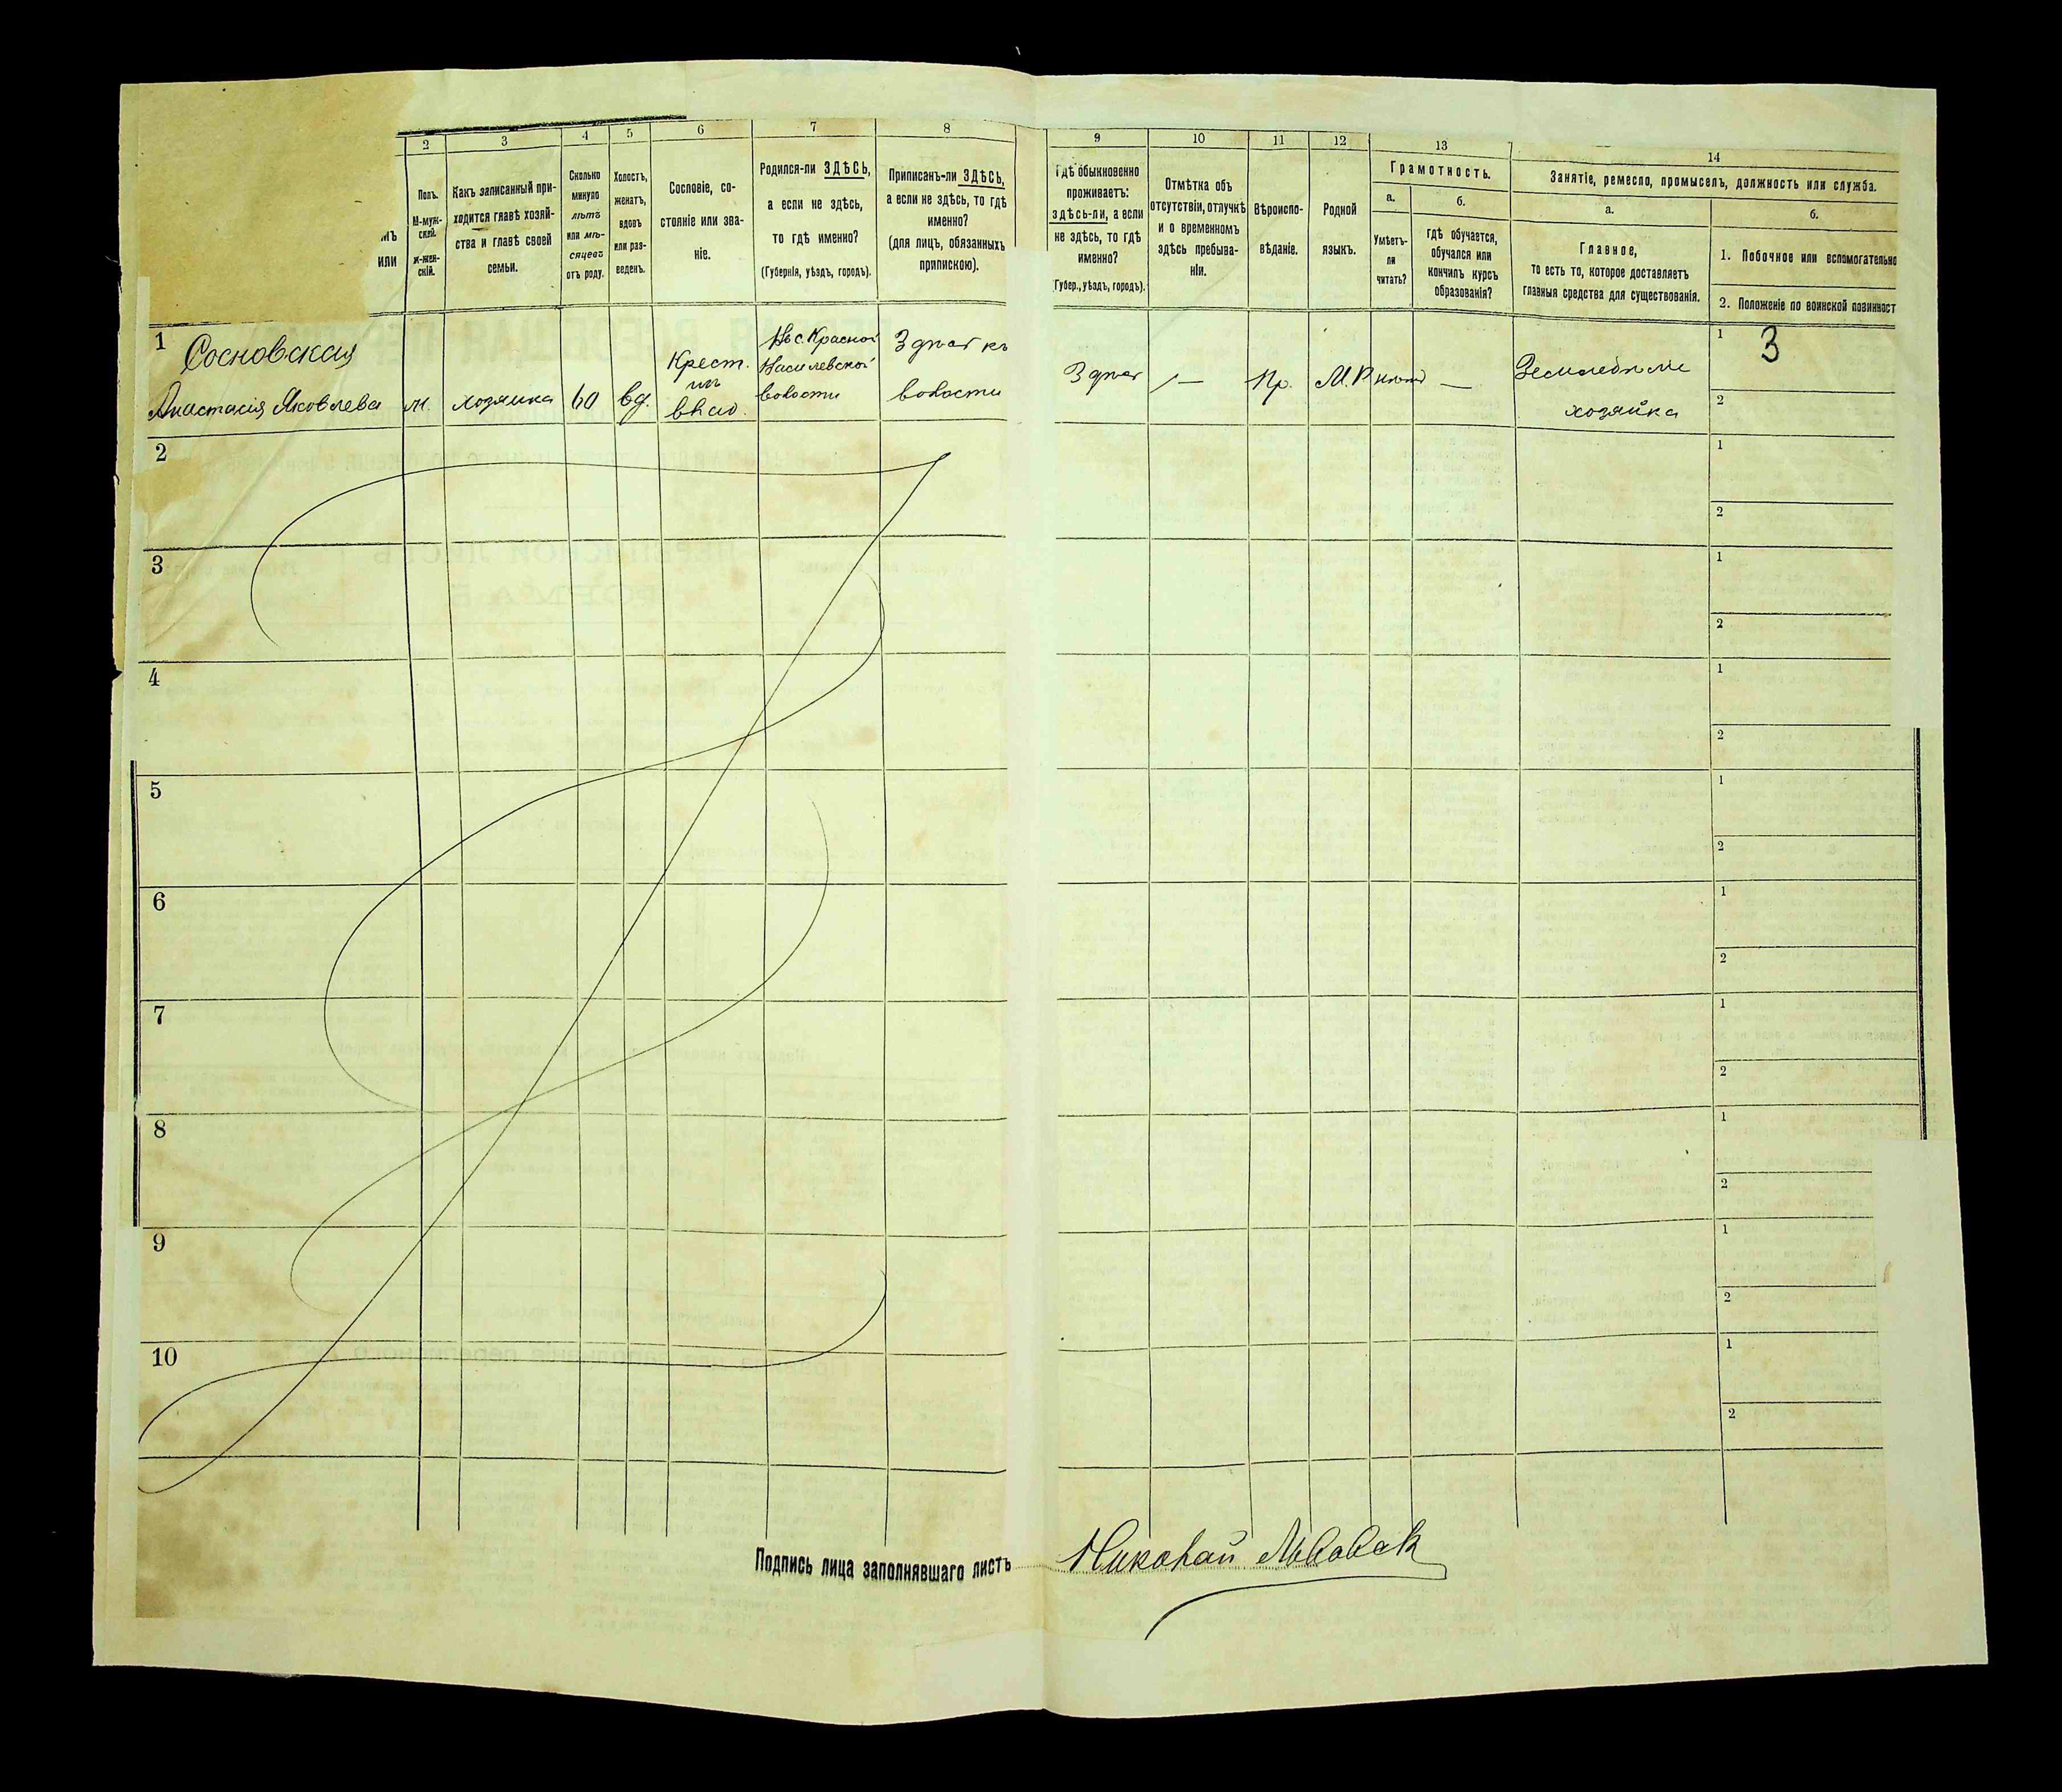 2
3
4
5
6
7
8
9
10
11
12
13
14
Полъ.
М-муж-
ской.
ж-жен-
скій.
Какъ записанный при-
ходится главѣ хозяй-
ства и главѣ своей
семьи.
Сколько
минуло
лѣтъ
или мѣ-
сяцевъ
отъ роду.
Холостъ,
женатъ,
вдовъ
или раз-
веденъ.
Сословіе, со-
стояніе или зва-
ніе.
Родился-ли ЗДѢСЬ,
а если не здѣсь,
то гдѣ именно?
(Губернія, уѣздъ, городъ).
Приписанъ-ли ЗДѢСЬ,
а если не здѣсь, то гдѣ
именно?
(для лицъ, обязанныхъ
припискою).
Гдѣ обыкновенно
проживаетъ:
здѣсь-ли, а если
не здѣсь, то гдѣ
именно?
Губер., уѣздъ, городъ).
Отмѣтка объ
отсутствіи, отлучкѣ
и о временномъ
здѣсь пребыва-
ніи.
Вѣроиспо-
вѣданіе.
Родной
языкъ.
Грамотность.
а.
Умѣетъ-
ли
читать?
б.
гдѣ обучается,
обучался или
кончилъ курсъ
образованія?
Занятіе, ремесло, промыселъ, должность или служба.
а.
Главное,
то есть то, которое доставляетъ
главныя средства для существованія.
б.
1. Побочное или вспомогательно
2. Положеніе по воинской повинност
или
1
Сосновская
Анастасія Яковлева
хозяйка
60
вд.
Крест.
изъ
влад.
волости
волости
—
Пр.
М.Р
—
Земледѣліе
хозяйка
1
3
2
2
1
2
3
1
2
4
1
2
5
1
2
6
1
2
7
1
2
8
1
2
9
1
2
10
1
2
Подпись лица заполнявшаго листъ
Николай